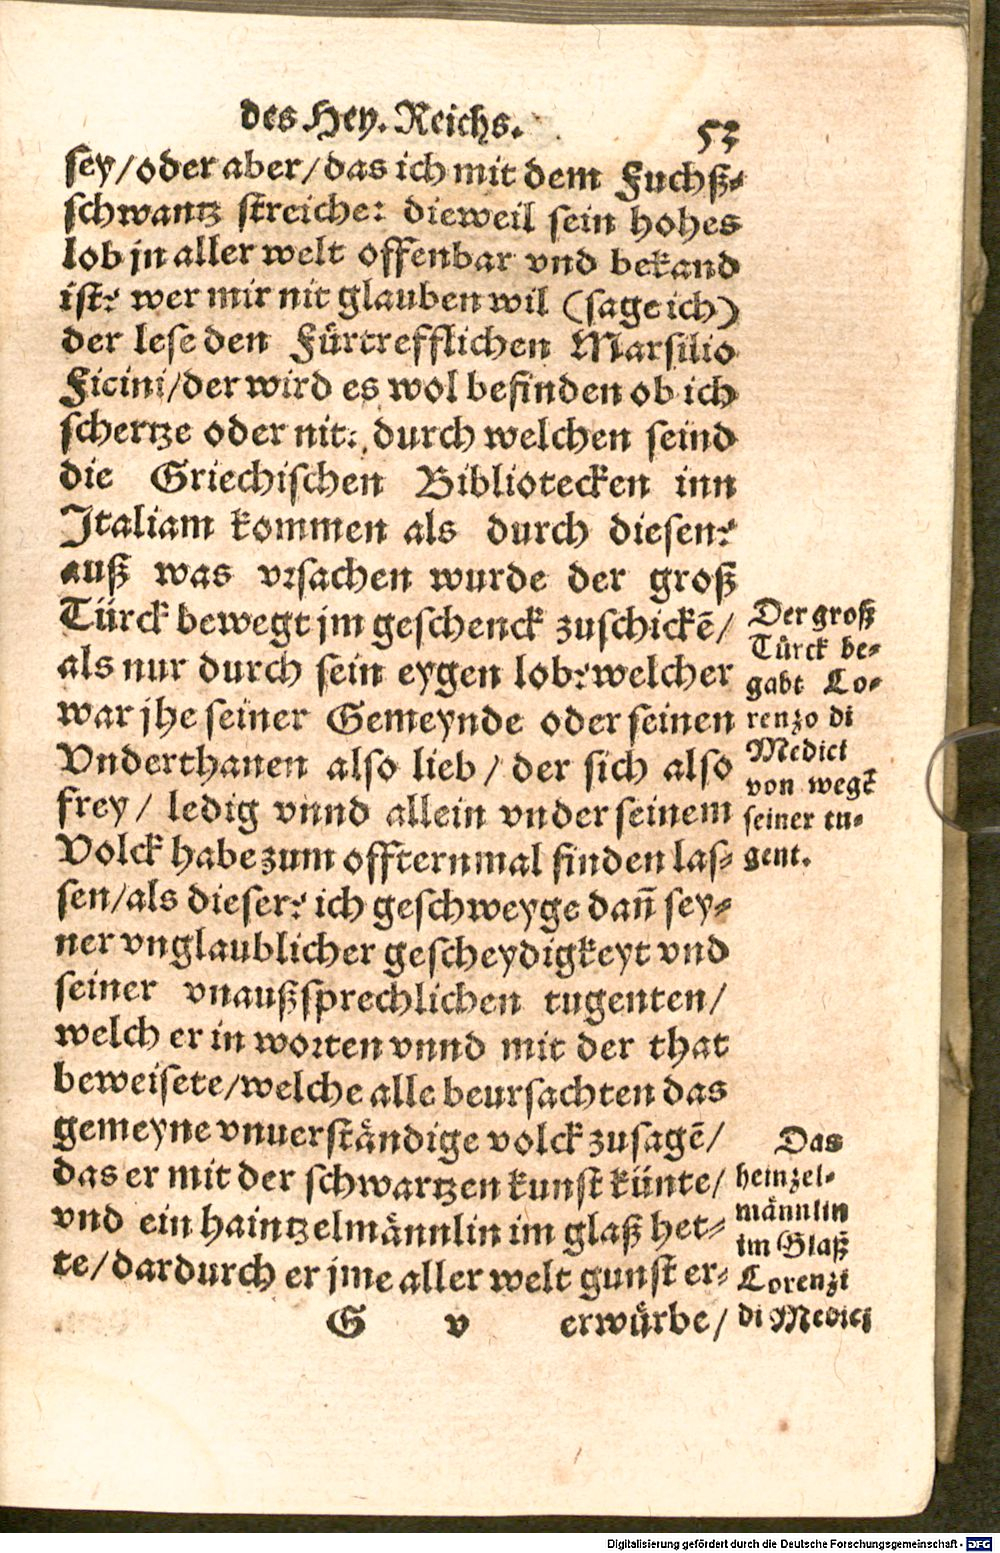 des Hey. Reichs.
53
sey/oder aber/das ich mit dem Fuchß⸗
schwantz streiche: dieweil sein hohes
lob jn aller welt offenbar vnd bekand
ist: wer mir nit glauben wil (sage ich)
der lese den Fürtrefflichen Marsilio
Ficini/der wird es wol befinden ob ich
schertze oder nit: durch welchen seind
die Griechischen Bibliotecken inn
Italiam kommen als durch diesen:
auß was vrsachen wurde der groß
Türck bewegt jm geschenck zuschickē/
als nur durch sein eygen lob: welcher
war jhe seiner Gemeynde oder seinen
Vnderthanen also lieb/ der sich also
frey/ ledig vnnd allein vnder seinem
Volck habe zum offternmal finden las⸗
sen/als dieser: ich geschweyge dañ sey⸗
ner vnglaublicher gescheydigkeyt vnd
seiner vnaußsprechlichen tugenten/
welch er in worten vnnd mit der that
beweisete/welche alle beursachten das
gemeyne vnuerständige volck zusagē/
das er mit der schwartzen kunst künte/
vnd ein haintzelmännlin im glaß het⸗
te/dardurch er jme aller welt gunst er⸗
G v erwürbe/
Der groß
Türck be⸗
gabt Lo⸗
renzo di
Medici
von wegē
seiner tu⸗
gent.
Das
heinzel⸗
männlin
im Glaß
Lorenzi
di Medici
Digitalisierung gefördert durch die Deutsche Forschungsgemeinschaft - DFG